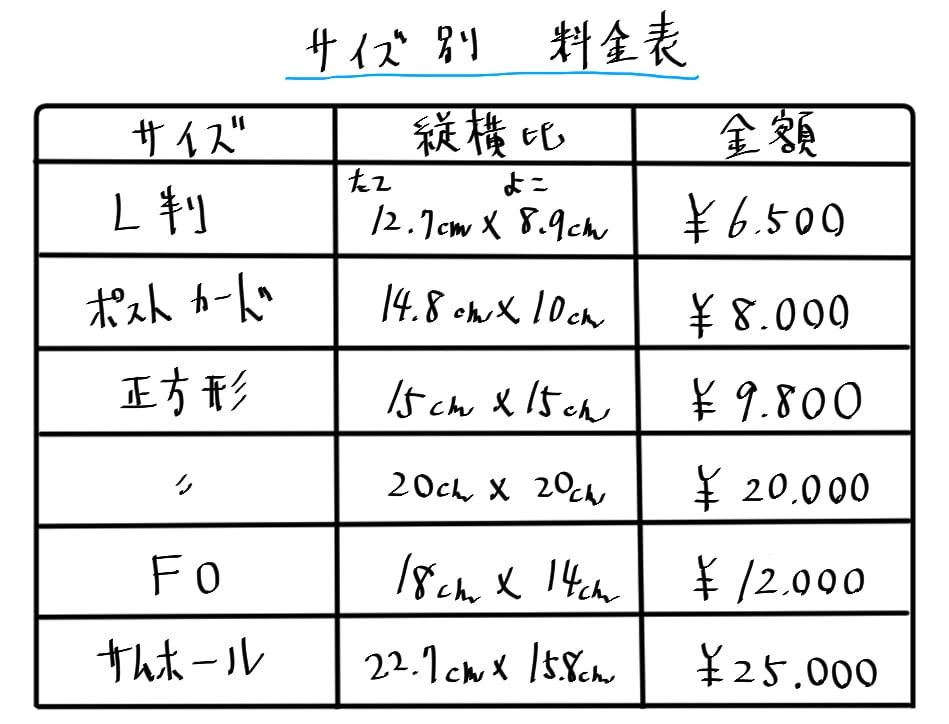 サイズ別 料金表
サイズ 縦横比 金額
たて よこ
L判 12.7cm×8.9cm ¥6.500
ポストカード 14.8cm×10cm ¥8.000
正方形 15cm×15cm ¥9.800
〃 20cm×20cm ¥20.000
F0 18cm×14cm ¥12.000
サムホール 22.7cm×15.8cm ¥25.000